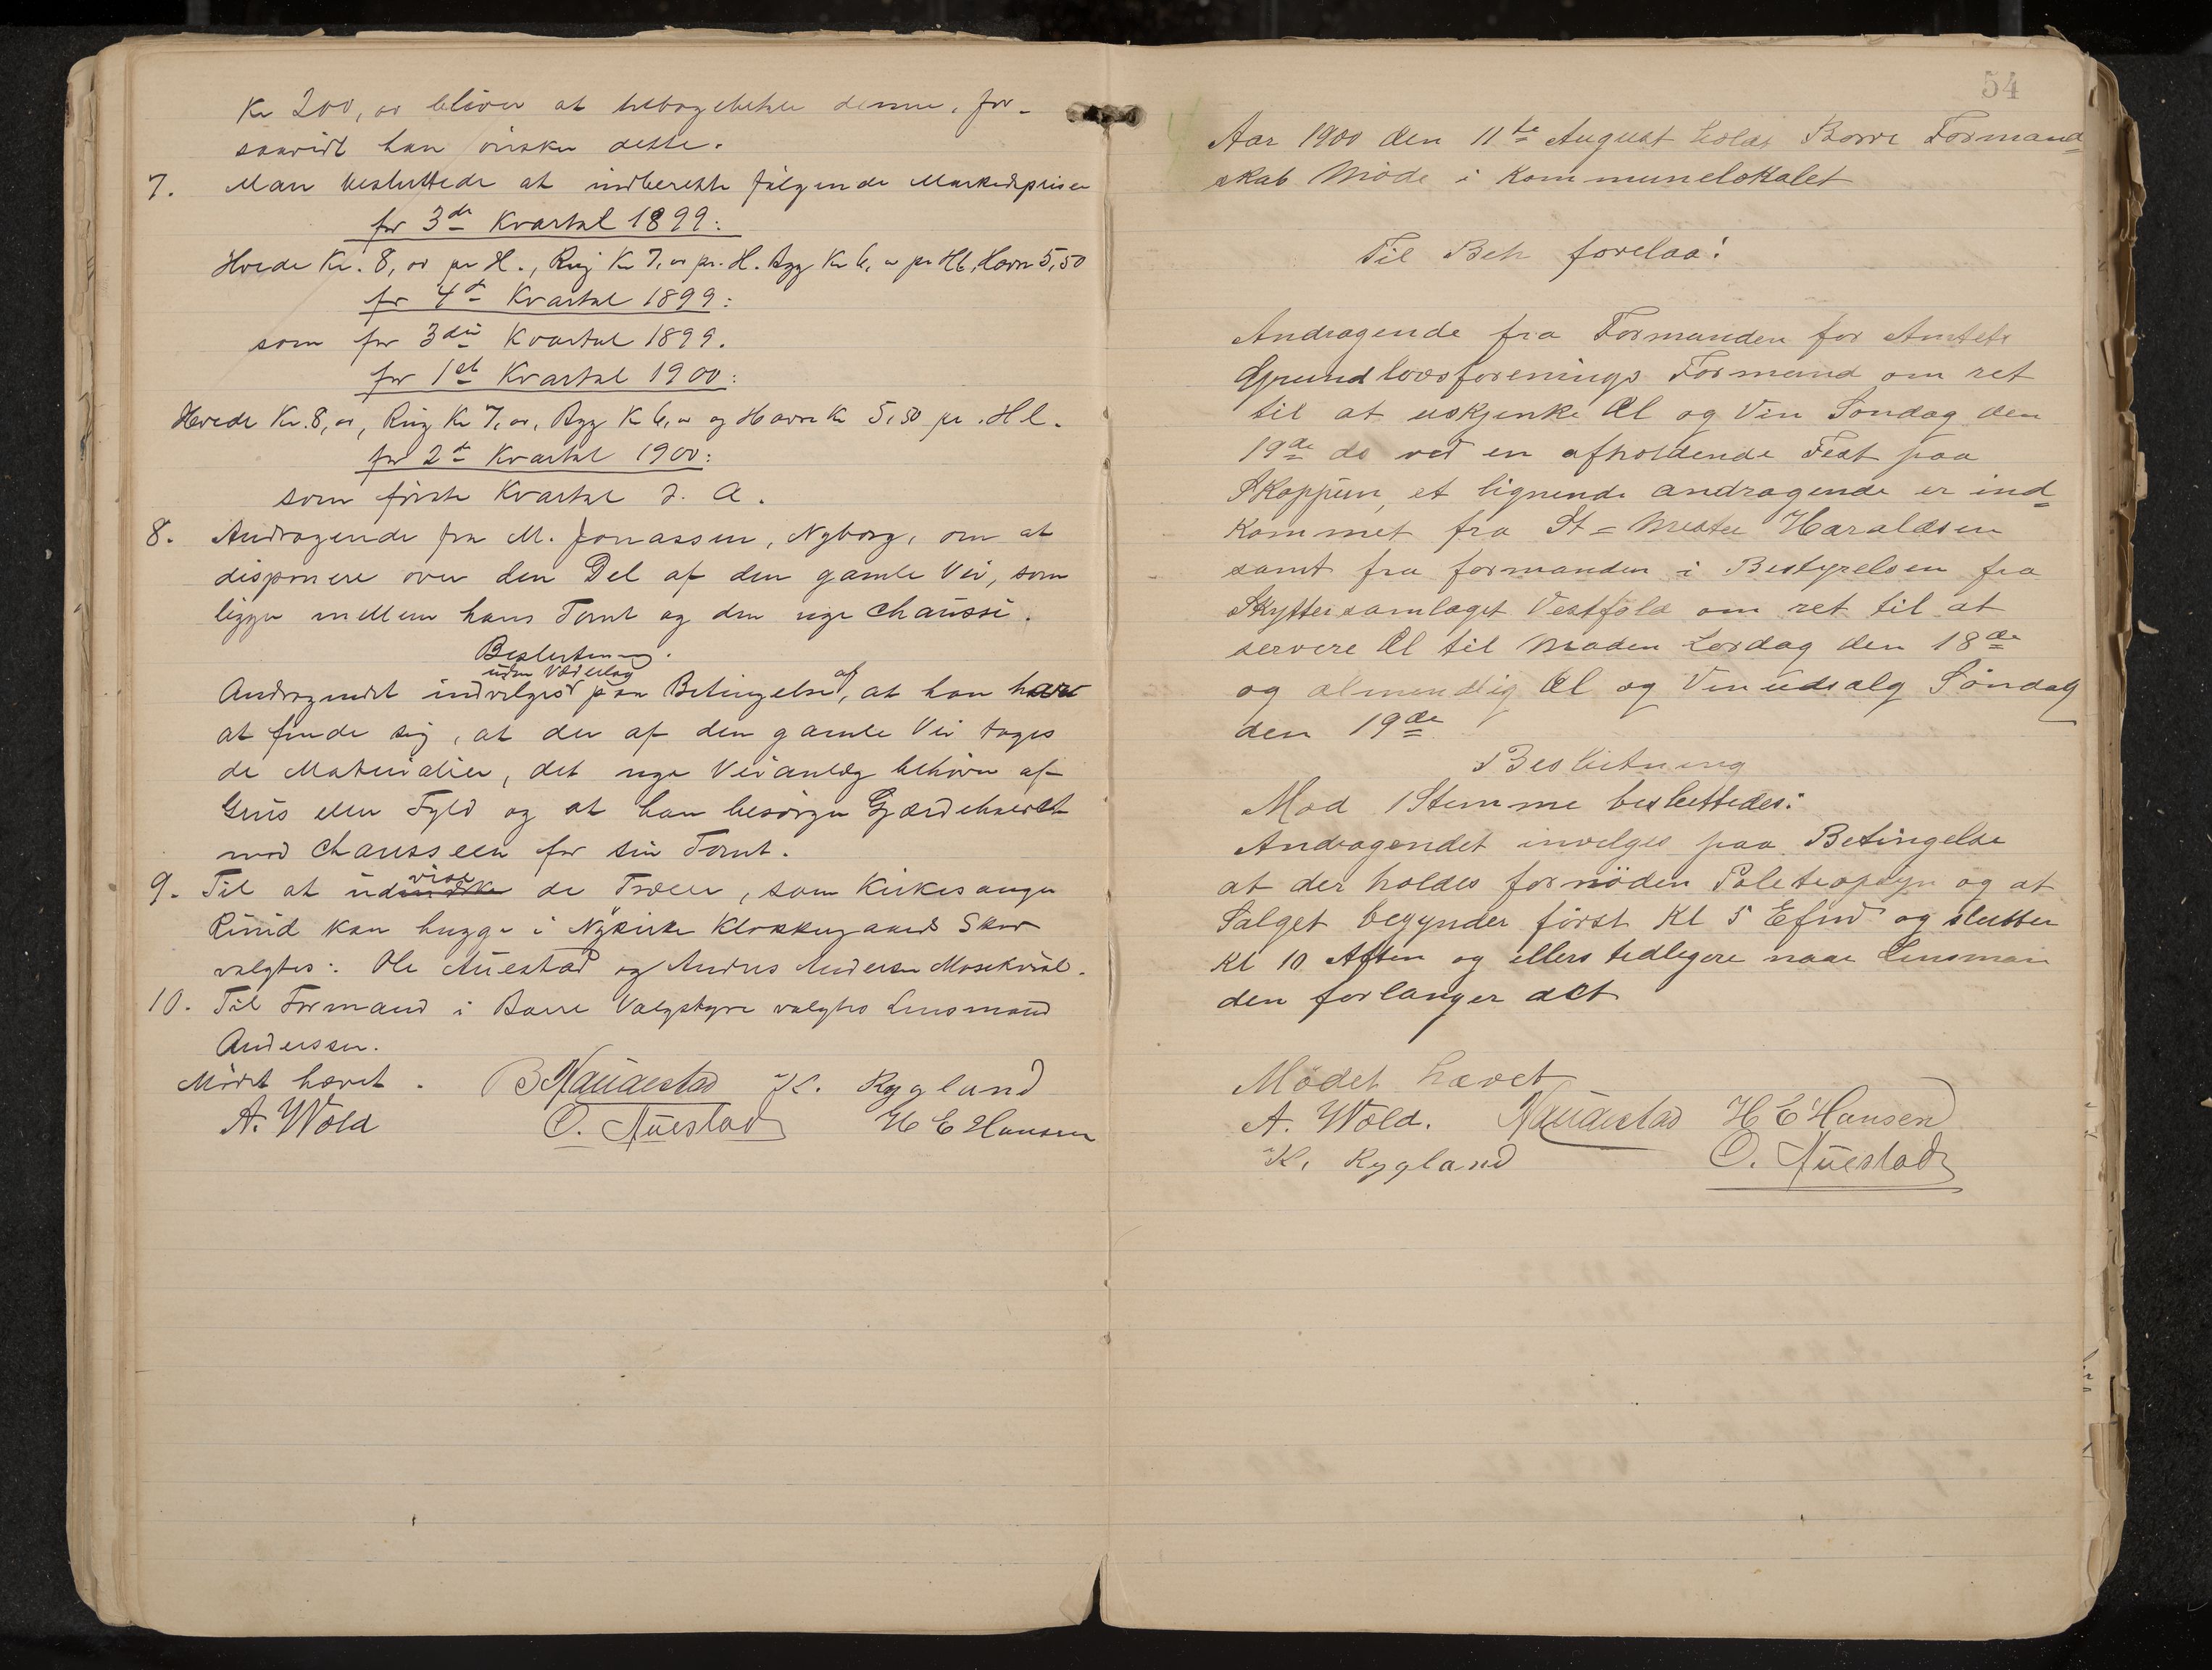 Kr 200, oo bliver at tilbagebetale denne, for-
saavidt han ønsker dette.
7. Man besluttede at indberette følgende Markedspriser
for 3die Kvartal 1899:
Hvede Kr. 8, oo pr H., Rug Kr 7, oo pr. H. Byg Kr 6, oo pr Hl, Havre 5,50
for 4de Kvartal 1899:
som for 3die Kvartal 1899.
for 1ste Kvartal 1900:
Hvede Kr. 8, oo, Rug Kr 7, oo, Byg Kr 6, oo og Havre Kr 5,50 pr. Hl.
for 2det Kvartal 1900:
som første Kvartal d. A.
8. Andragende fra M. Jonassen, Nyborg, om at
disponere over den Del af den gamle Vei, som
ligger mellem hans Tomt og den nye Chaussé.
Beslutning.
uden Vederlag af
Andragendet indvilges paa Betingelse, at han har
at finde sig, at der af den gamle Vei tages
de Materialier, det nye Veianlæg behøver af
Grus eller Fyld og at han besørger Gjerdeholdet
mod Chausseen for sin Tomt.
9. Til at udvise de Træer, som Kirkesanger
Ruud kan hugge i Nykirke Klokkergaards Skov
valgtes: Ole Auestad og Andreas Andersen Mosekvist.
10. Til Formand i Borre Valgstyre valgtes Lensmand
Anderssen.
Mødet hævet. B Naudestad K. Rygland
A. Wold O. Auestad H E Hansen
54
Aar 1900 den 11te August holdt Borre Formand=
skab Møde i Kommunelokalet
Til Beh forelaa:
Andragende fra Formanden for Amtets
Grundlovsforenings Formand om ret
til at uskjenke Øl og Vin Søndag den
19de ds ved en afholdende Fest paa
Skoppum, et lignende andragende er ind=
kommet fra St=Mester Haraldsen
samt fra formanden i Bestyrelsen fra
Skyttersamlaget Vestfold om ret til at
servere Øl til Maden Lørdag den 18de
og almendlig Øl og Vin udsalg Søndag
den 19de
Beslutning
Mod 1 Stemme besluttedes:
Andragendet invelges paa Betingelse
at der holdes fornöden Politeopsyn og at
Salget begynder först Kl 5 Efmd og slutter
Kl 10 Aften og ellers tedligere naar Lensman
den forlanger det
Mödet hævet
A. Wold. Naudestad H E Hansen
K. Rygland O. Auestad